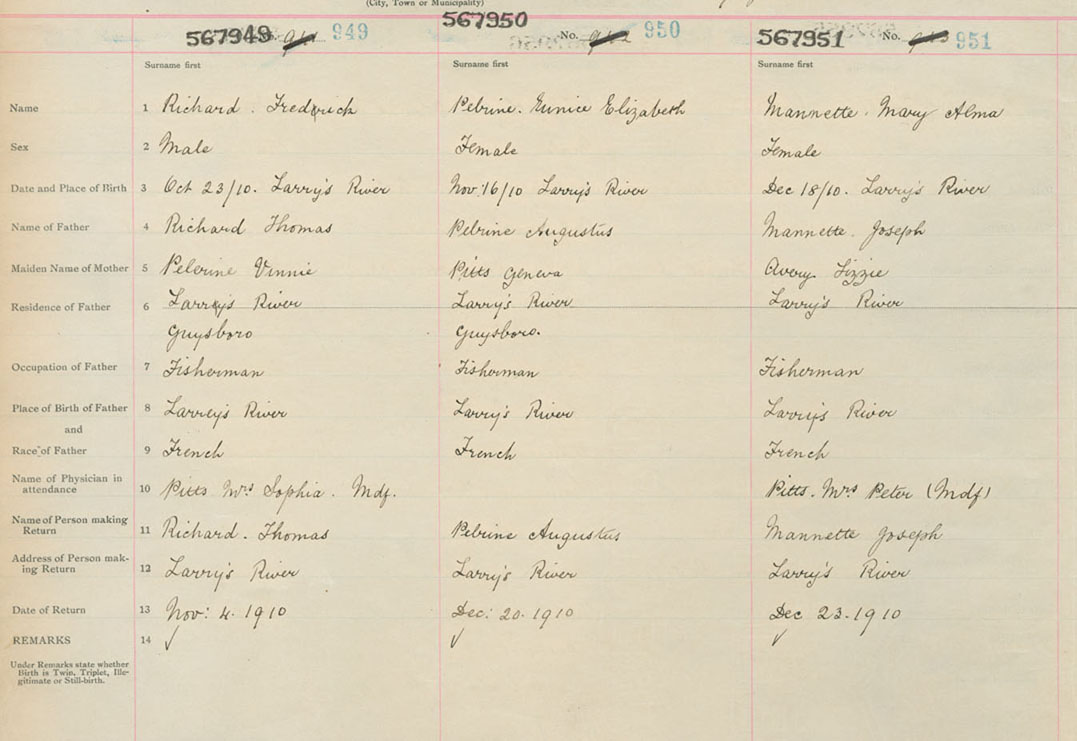 (City, Town or Municipality)
567949 949 567950 No. 950 567951 No. 951
Surname first Surname first Surname first
Name 1 Richard. Frederick Pelrine. Eunice Elizabeth Mannette. Mary Alma
Sex 2 Male Female Female
Date and Place of Birth 3 Oct 23/10. Larry's River Nov. 16/10 Larry's River Dec 18/10. Larry's River
Name of Father 4 Richard Thomas Pelrine Augustus Mannette. Joseph
Maiden Name of Mother 5 Pelerine Vinnie Pitts Geneva Avery Lizzie
Residence of Father 6 Larry's River Larry's River Larry's River
Guysboro Guysboro.
Occupation of Father 7 Fisherman Fisherman Fisherman
Place of Birth of Father 8 Larrey's River Larry's River Larry's River
and
Race of Father 9 French French French
Name of Physician in
attendance 10 Pitts Mrs Sophia. Mdf. Pitts. Mrs Peter (Mdf)
Name of Person making
Return 11 Richard. Thomas Pelrine Augustus Mannette Joseph
Address of Person mak-
ing Return 12 Larry's River Larry's River Larry's River
Date of Return 13 Nov: 4. 1910 Dec: 20. 1910 Dec 23. 1910
REMARKS 14 ✓ ✓ ✓
Under Remarks state whether
Birth is Twin, Triplet, Ille-
gitimate or Still-birth.